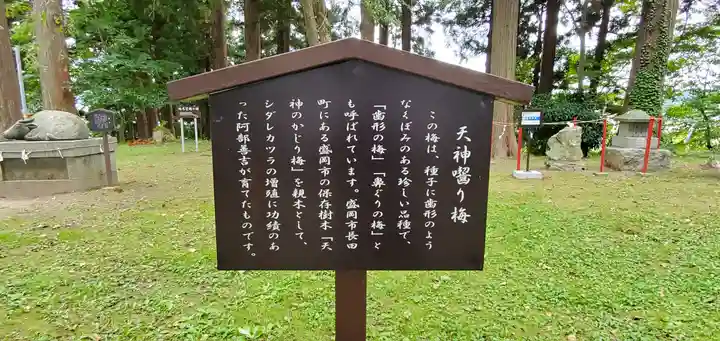 天神囓り梅
この梅は、種子に歯形のよう
なくぼみのある珍しい品種で、
「歯形の梅」「鼻ぐりの梅」と
も呼ばれています。盛岡市長田
町にある盛岡市の保存樹木「天
神のかじり梅」を親木として、
シダレカツラの増殖に功績のあ
った阿部善吉が育てたものです。